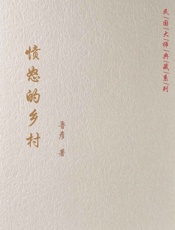 民国大师典藏系列
愤怒的乡村
鲁彦 著